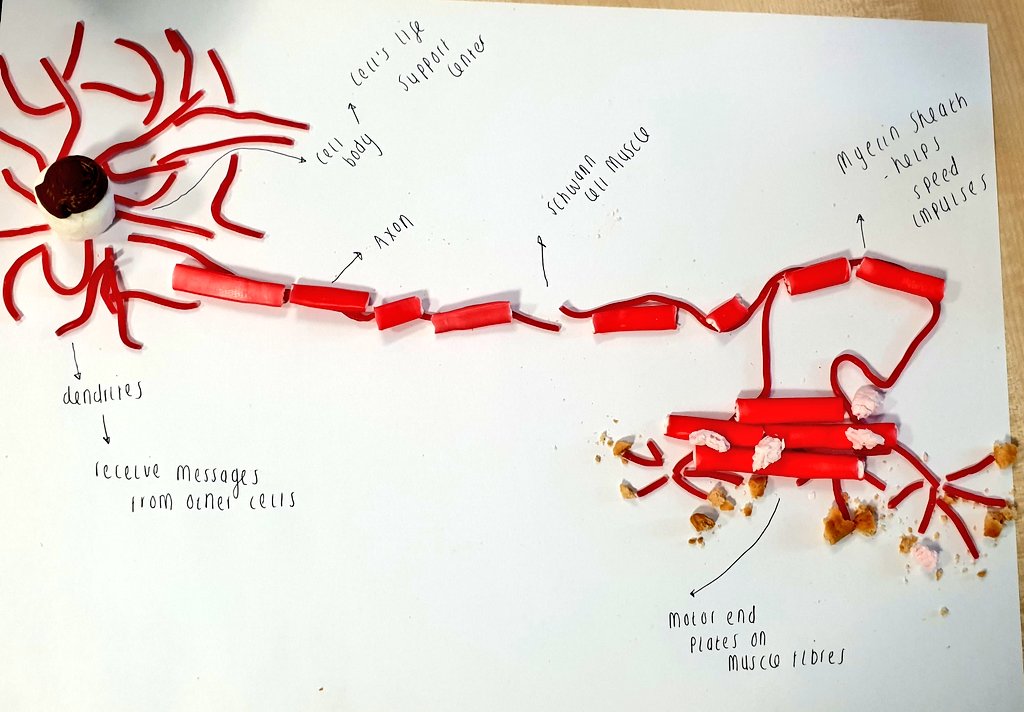 cell's life
support
center
cell
body
axon
schwann
cell muscle
Myelin Sheath
- helps
speed
impulses
dendrites
receive messages
from other cells
Motor end
plates on
muscle fibres